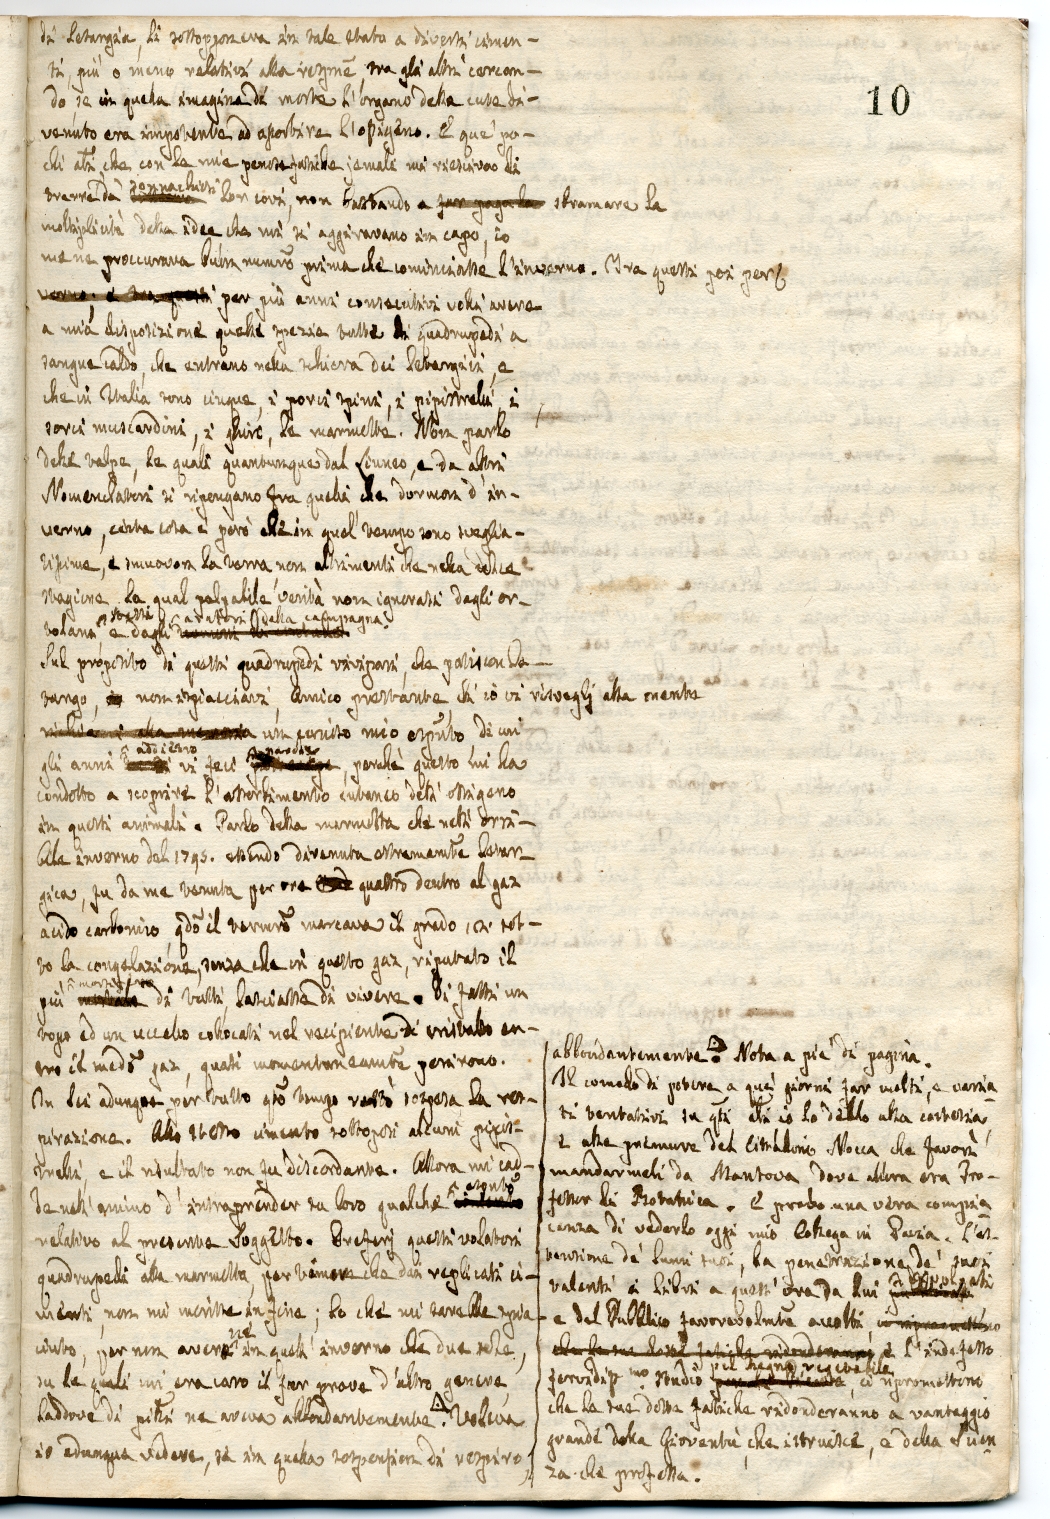 10
di letargìa, li sottoponeva in tale stato a diversi cimen-
ti, più o meno relativi alla
do, se in quella imagine di morte l'organo della cute di-
venuto era impotente ad assorbire l'ossigeno. E que' po-
chi altri che con le mie jemali mi riescivao di
trarre da sonnachiosi lor covi, non bastando a far paga la sbramare la
moltiplicità delle idee che mi si aggiravano in capo, io
me ne proccurava buon numero prima che cominciasse l'inverno. Tra questi poi per
verno; e tra questi per più anni consecutivi volli avere
a mia disposizione quelle spezie tutte di quadrupedi a
sangue caldo, che entrano nella schiera dei letargici, e
che in Italia sono cinque, i porci spini, i pipistrelli, i
sorci muscardini, i ghiri, le marmotte. Non parlo
delle volpe, le quali quantunque dal Linneo, e da altri
Nomenclatori si ripongano fra quelli che dormon d'in-
verno, certa cosa è però che in quel tempo sono sveglia-
tissime, e smuovon la terra non altrimenti che nella dolce
stagione. La qual palpabile verità non ignorasi dagli or-
tolani e dagli aratori della campagna.
Sul proposito di questi quadrupedi vivipari, che patiscon le-
targo, non ispiacciavi, Amico prestante che io vi risvegli alla mente
un curioso mio esperimento di cui
gli anni addietro vi feci parola, perchè questo mi ha
condotto a scoprire l'assorbimento cutaneo dell'ossigeno
in questi animali. Parlo della marmotta che nell'orri-
bile inverno del 1795. essendo divenuta estremamente letar-
gica, fu da me tenuta per ore quattro dentro al gaz
acido carbonico, quando il termometro marcava il grado 12. sot-
to la congelazione, senza che in questo gaz, riputato il
più mortifero di tutti, lasciasse di vivere. Di fatti un
topo ed un uccello collocati nel recipiente di cristallo en-
tro il medesimo gaz, quasi momentaneamente perirono.
In lei adunque per tutto questo tempo restò sospesa la res-
pirazione. Allo stesso cimento sottoposi alcuni pipis-
trelli, e il risultato non fu discordante. Allora mi cad-
de nell'animo d'intraprender su loro qualche esperimento
relativo al presente soggetto. Preferj questi volatori
quadrupedi alla marmotta, per timore che dai replicati ci-
menti, non mi morisse in fine; lo che mi sarebbe spia-
ciuto, per non averne in quell'inverno che due sole,
su le quali mi era caro il far prove d'altro genere,
laddove di pipistrelli ne aveva abbondantemente. Voleva
io adunque vedere, se in quella sospension di respiro,
abbondantemente. Nota a piè di pagina.
Il comodo di potere a quei giorni far molti, e varia
ti tentativi su questi io lo debbo alla cortesia,
e alle premure del Cittadino Nocca che favorì
mandarmeli da Mantova dove allora era Pro-
fessor di Botanica. E provo una vera compia
cenza di vederlo oggi mio Collega in Pavia. L'es-
tensione de' lumi suoi, la penetrazione de' suoi
talenti, i libri a quest'ora da lui pubblicati
e dal Pubblico favorevolmente accolti, ci ripromettono
che le sue dotte fatiche ridonderanno e l'indefesso
fervidissimo studio pel Regno vegetabile, ci ripromettono
che le sue dotte fatiche ridonderanno a vantaggio
grande della Gioventù che istruisce, e della Scien
za che professa.